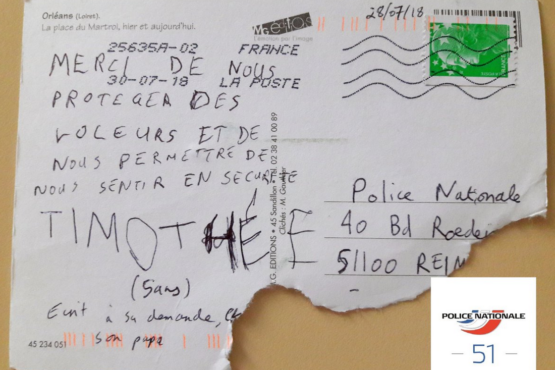 Orléans (Loiret).
La place du Martroi, hier et aujourd'hui.
28/07/18
25635A-02 FRANCE
30-07-18 LA POSTE
MERCI DE NOUS
PROTEGER DES
VOLEURS ET DE
NOUS PERMETTRE DE
NOUS SENTIR EN SECURITE
TIMOTHÉE
(5ans)
Ecrit à sa demande,
son papa
45 234 051
.G. EDITIONS • 45 Sandillon Tél. 02 38 41 00 89
Clichés : M.
Police Nationale
40 Bd
51100 REIM
POLICE NATIONALE
- 51 -